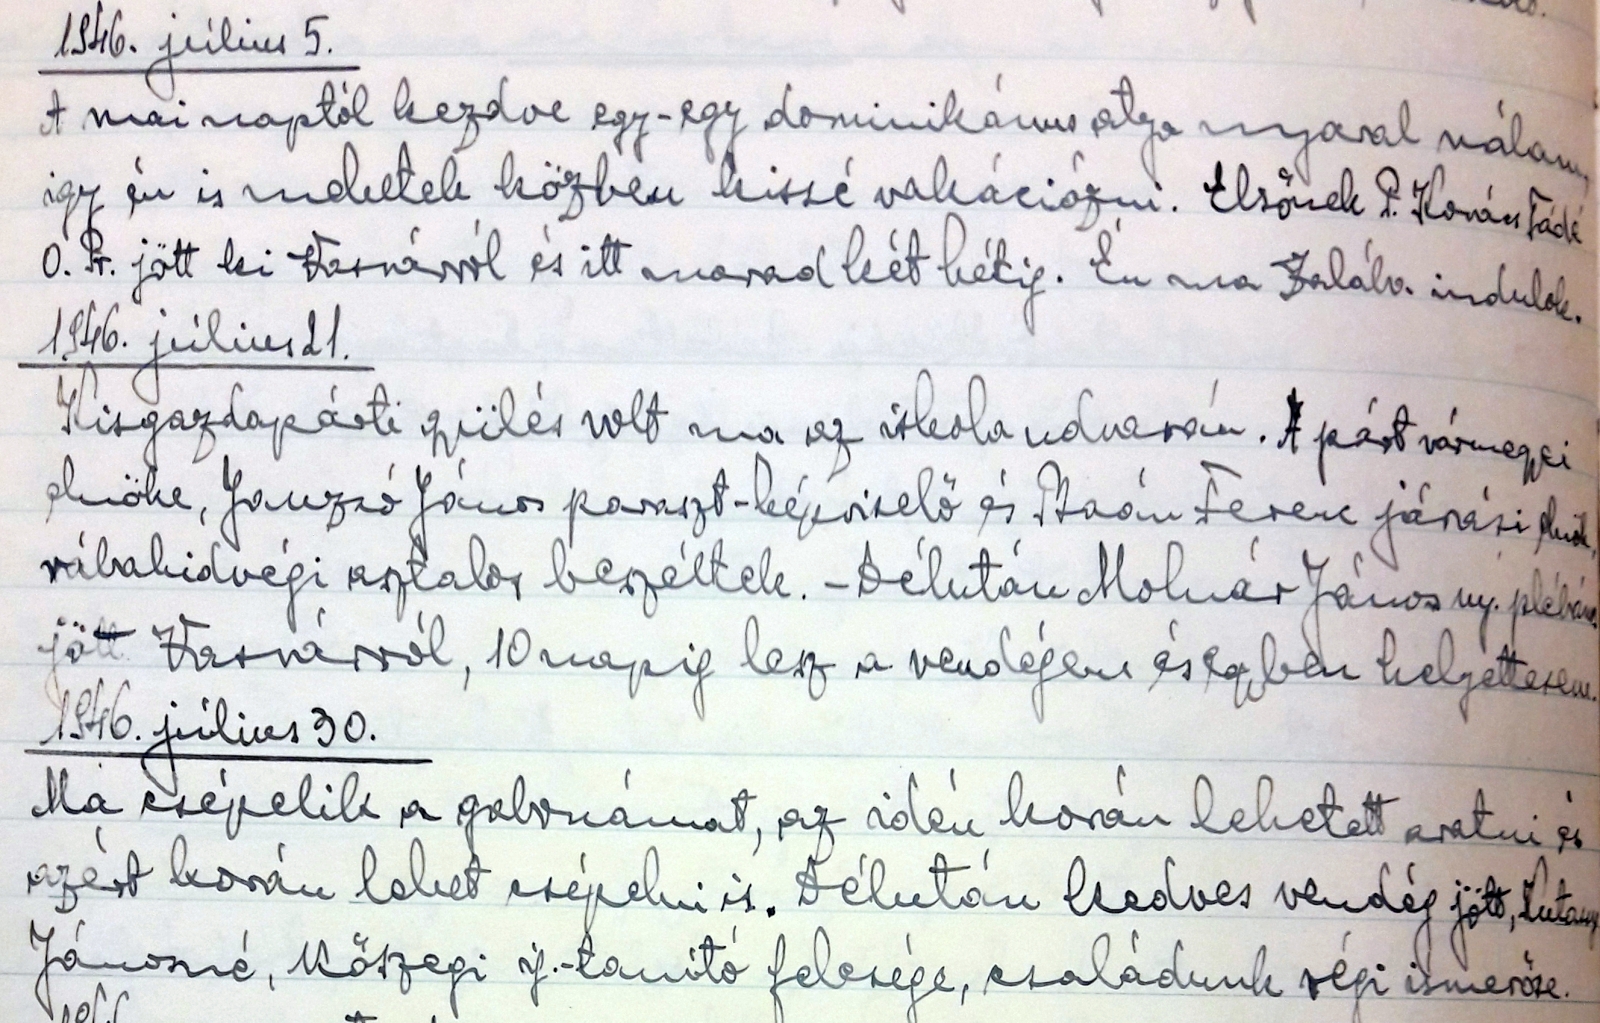 1946. július 5.
A mai naptól kezdve egy-egy dominikánus atya nyaral nálam,
így én is mehetek közben kissé vakációzni. Elsőnek P. Kovács Tádé
O. Pr. jött ki Vasvárról és itt marad két hétig. Én ma Zaláb. indulok.
1946. július 21.
Kisgazdapárti gyűlés volt ma az iskola udvarán. A párt vármegyei
elnöke, Janzsó János paraszt-képviselő és Ferenc járási elnök,
rábahidvégi asztalos beszéltek. - Délután Molnár János ny. plébános
jött Vasvárról, 10 napig lesz a vendégem és egyben helyettesem.
1946. július 30.
Ma csépelik a gabonámat, az idén korán lehetett aratni és
azért korán lehet csépelni is. Délután kedves vendég jött,
Jánosné, kőszegi ig.-tanító felesége, családunk régi ismerőse.